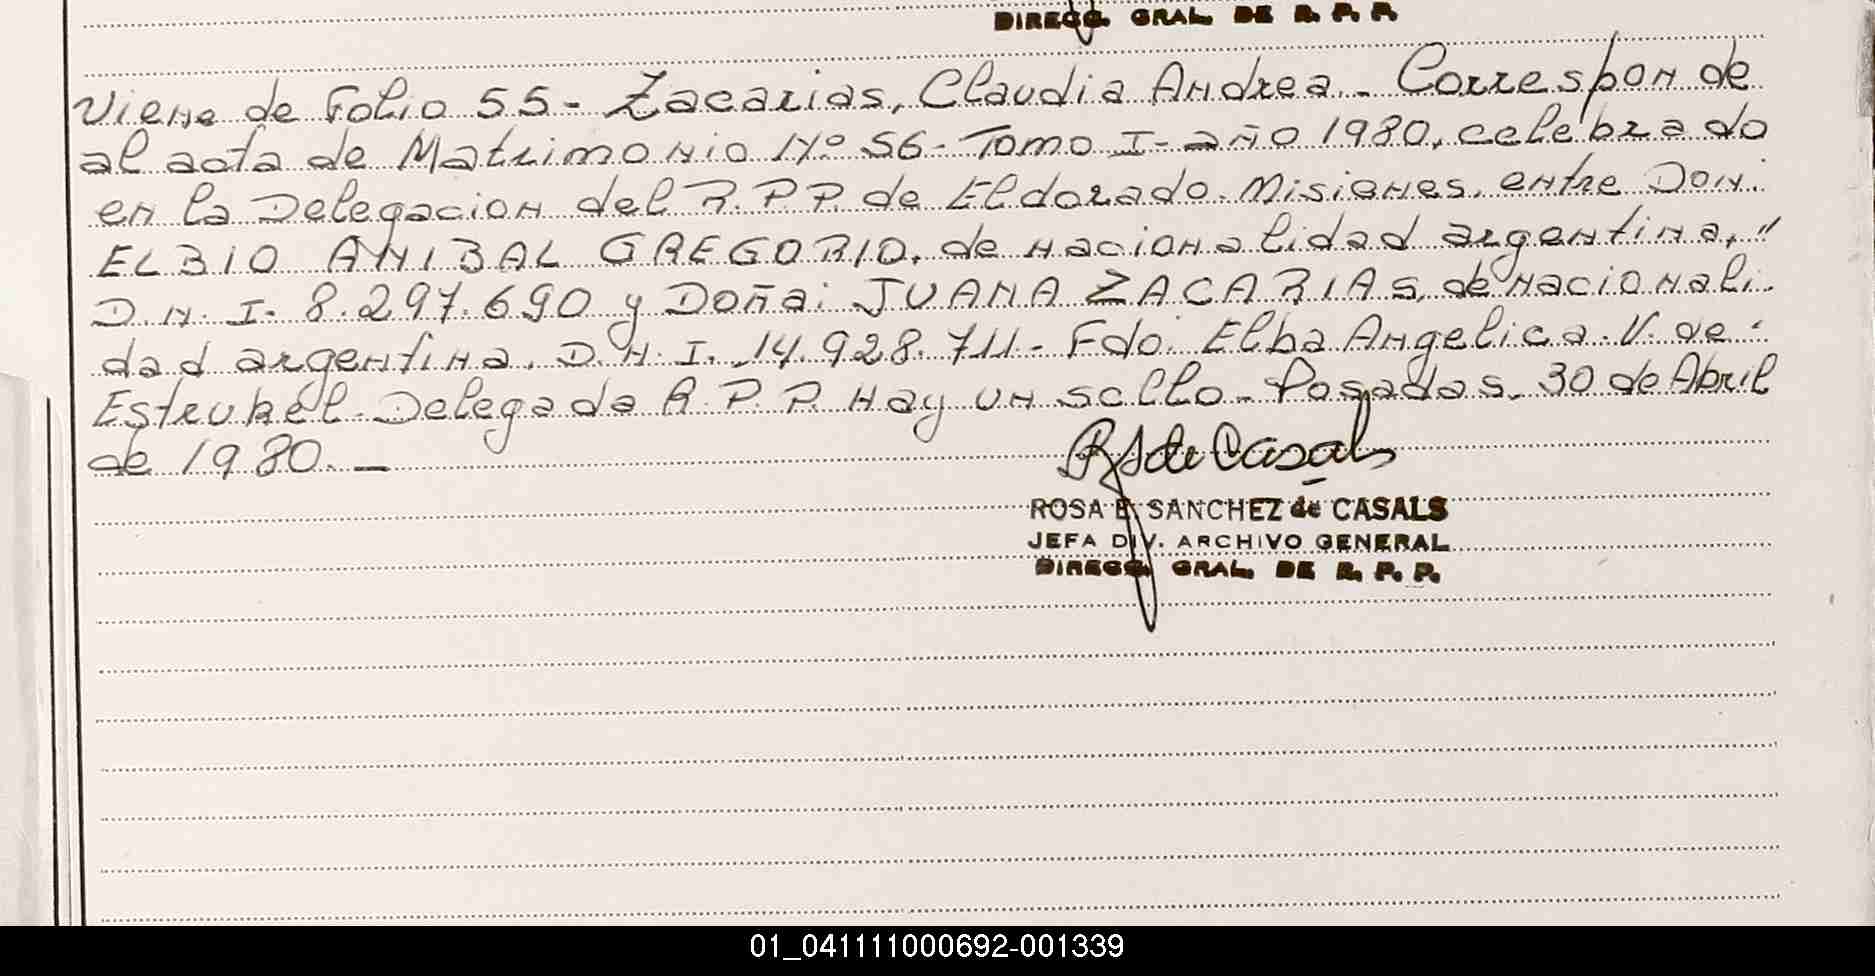 DIRECC. GRAL. DE R. P. P.
Viene de Folio 55 - Zacarias, Claudia Andrea - Correspon de
al acta de Matrimonio N.º 56 - Tomo I - año 1980, celebrado
en la Delegacion del R.P.P. de Eldorado. Misiones, entre Don:
ELBIO ANIBAL GREGORIO, de nacionalidad argentina, "
D.N.I. 8.297.690 y Doña: JUANA ZACARIAS, de nacionali-
dad argentina, D.N.I. 14.928.711 - Fdo: Elba Angelica V. de
Estrubel. Delegada R.P.P. Hay un sello - Posadas, 30 de Abril
de 1980. -
RS de Casals
ROSA E. SANCHEZ de CASALS
JEFA DIV. ARCHIVO GENERAL
DIRECC. GRAL. DE R. P. P.
01_041111000692-001339